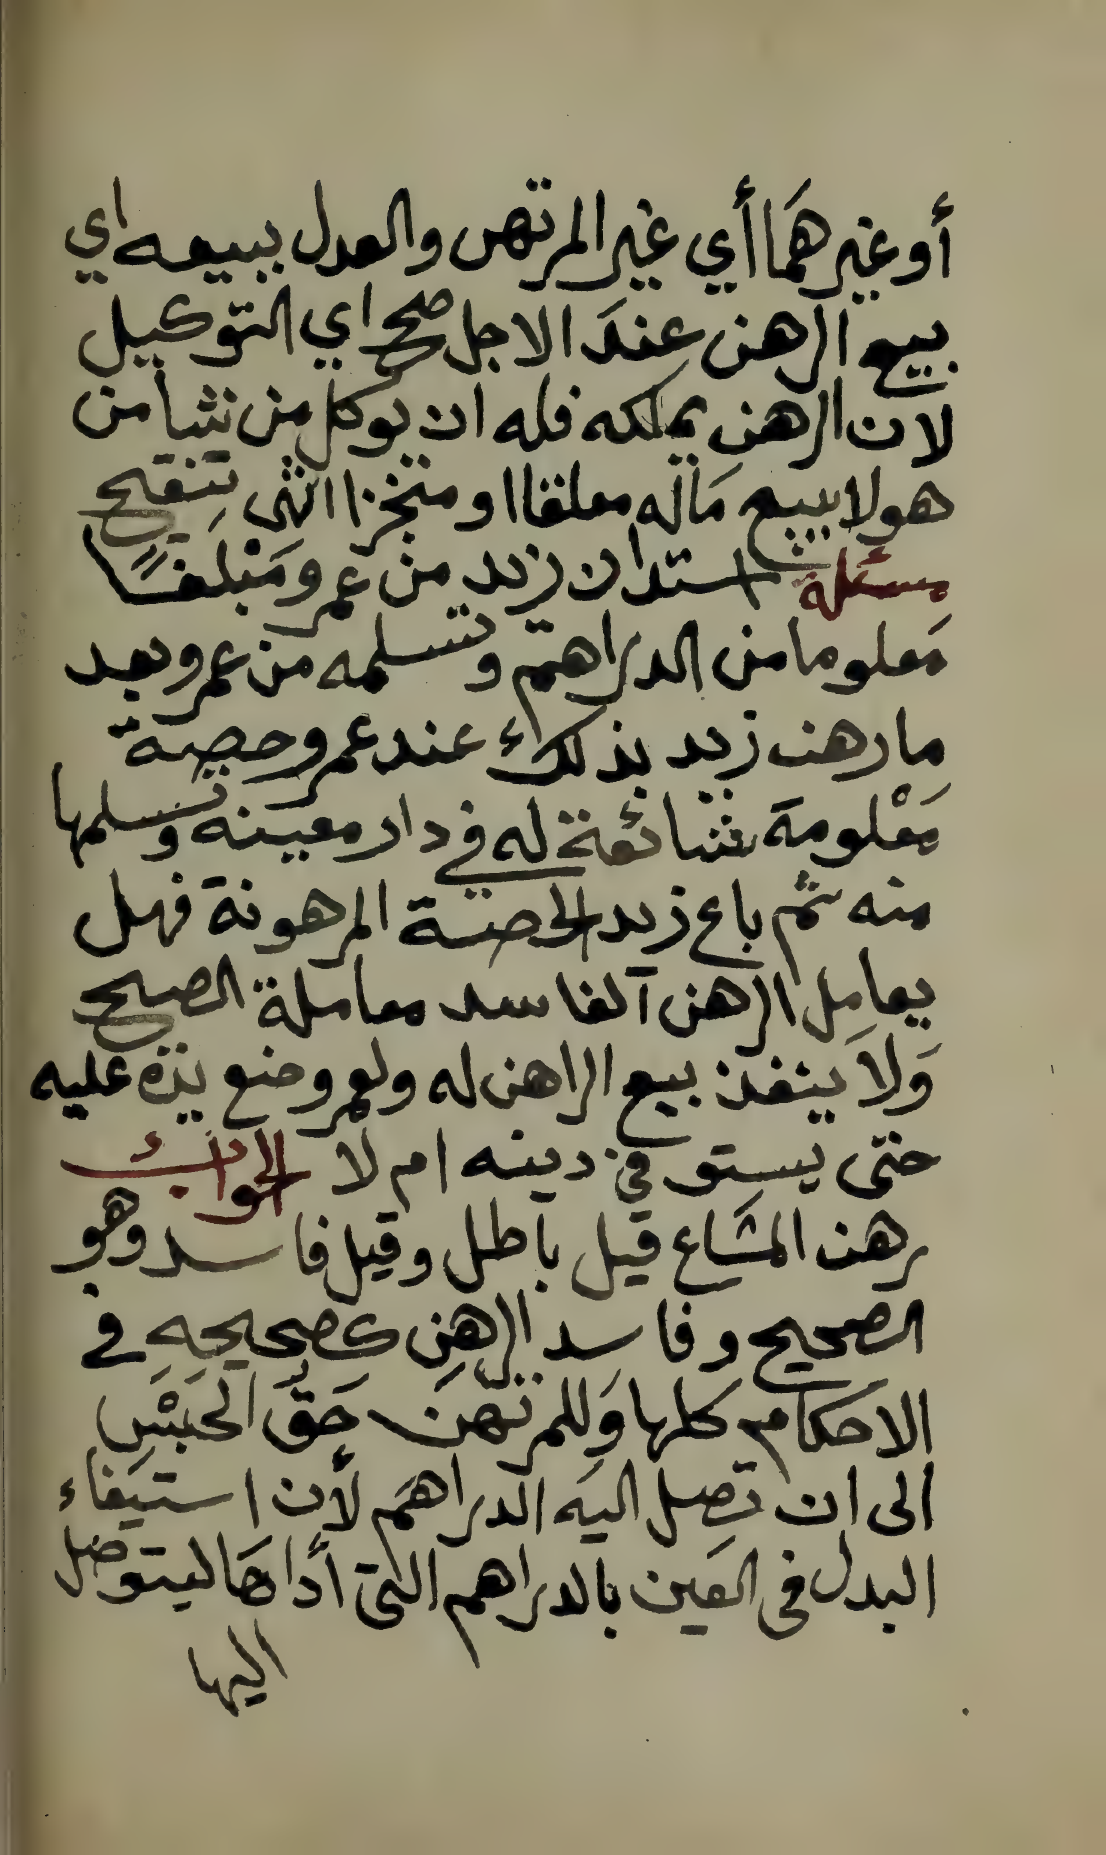 أو غيرهما أي غير المرتهن والعدل ببيعه اي
بيع الرهن عند الاجل صح اي التوكيل
لان الرهن يملكه فله ان يوكل من شأ من
هولا ببيع ماله معلقا او منجزا انتهى تنقيح
مسئلة استدان زيد من عمرو مبلغا
معلوما من الدراهم وتسلمه من عمرو بعد
ما رهن زيد بذلك عند عمرو حصة
معلومة شائعة له في دار معينة وتسلمها
منه ثم باع زيد الحصة المرهونة فهل
يعامل الرهن الفاسد معاملة الصيح
ولا ينفذ بيع الراهن له ولعمرو ضع يده عليه
حتى يستوفي دينه ام لا الجواب
رهن المشاع قيل باطل وقيل فاسد وهو
الصحيح وفاسد الرهن كصحيحه في
الاحكام كلها وللمرتهن حق الحبس
الى ان تصل اليه الدراهم لأن استيفاء
البدل في العين بالدراهم التي أداها ليتوصل
اليها